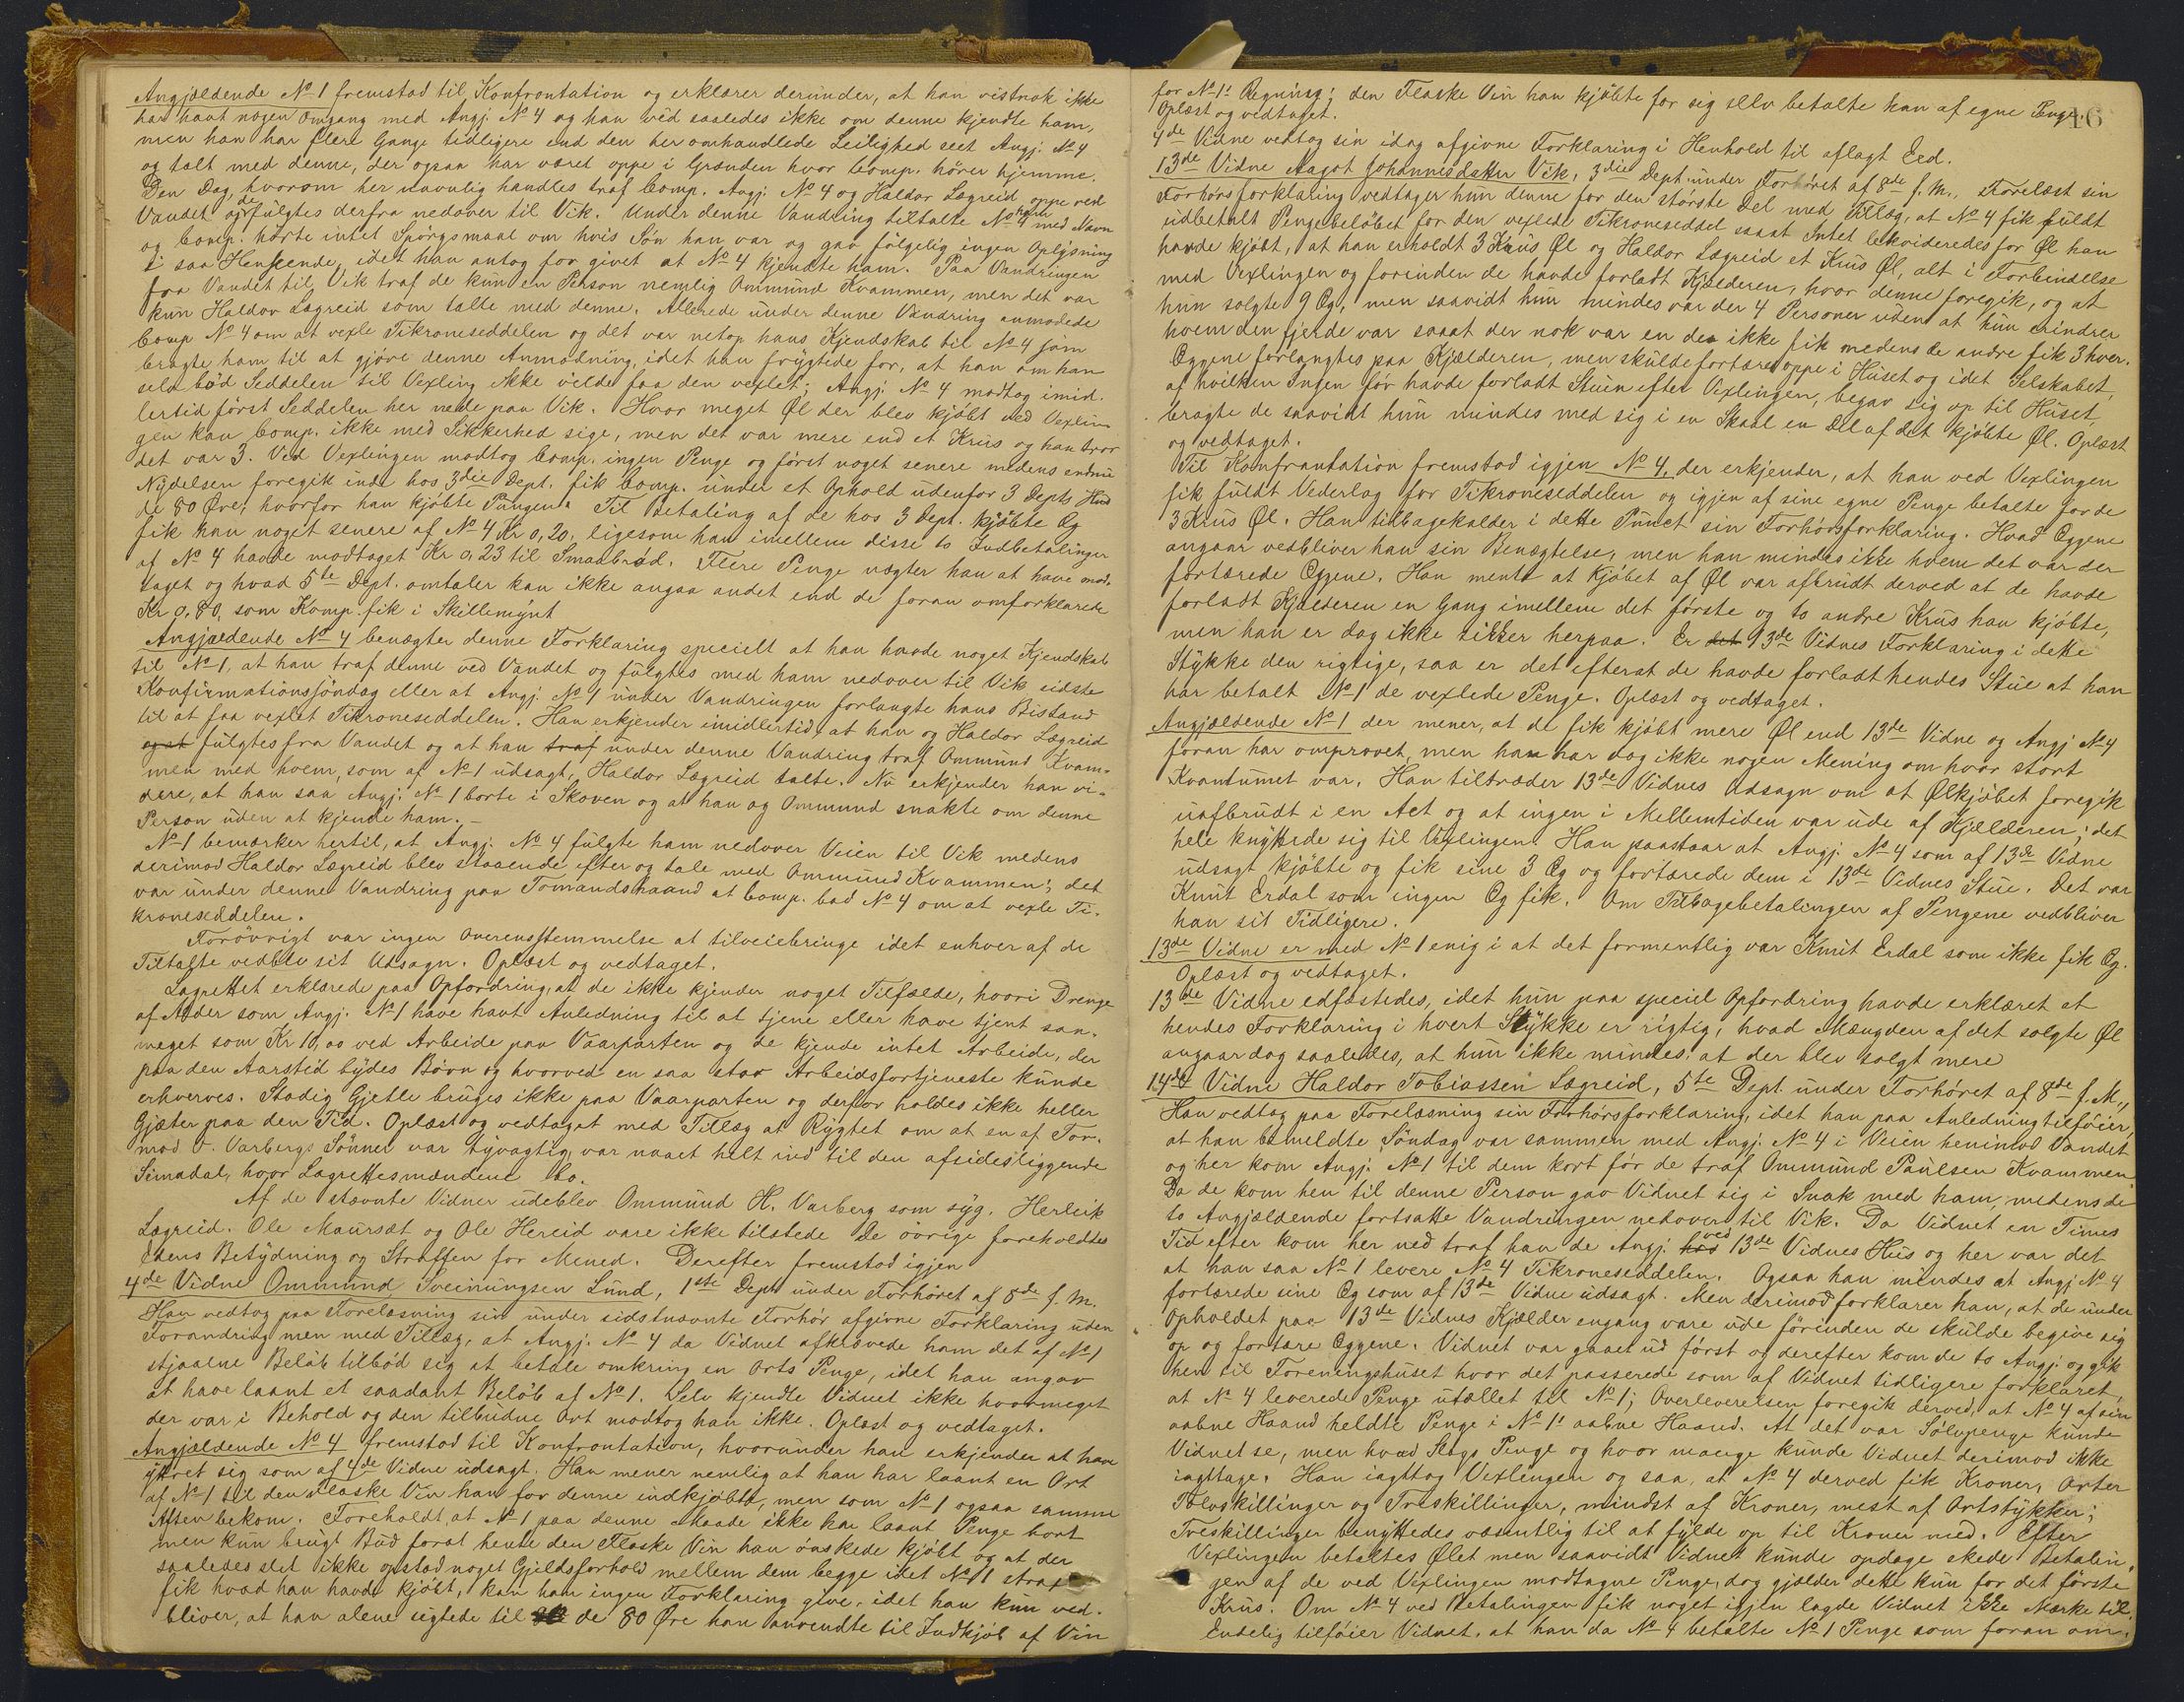 Angjældende No 1 fremstod til Konfrontation og erklærer derunder, at han vistnok ikke
har havt nogen Omgang med Angj. No 4 og han ved saaledes ikke om denne kjendte ham,
men han har flere Gange tidligere end den her omhandlede Leilighed seet Angj. No 4
og talt med denne, der ogsaa har været oppe i Grænden hvor Comp. hører hjemme.
Den Dag, hvorom her navnlig handles traf Comp. Angj. No 4 og Haldor Lægreid oppe ved
Vandet og de fulgtes derfra nedover til Vik. Under denne Vandring tiltalte No 4 ham med Navn
og Comp. hørte intet Spørgsmaal om hvis Søn han var og gav følgelig ingen Oplysning
i saa Henseende, idet han antog for givet at No 4 kjendte ham. Paa Vandringen
fra Vandet til Vik traf de kun en Person nemlig Ommund Kvammen, men det var
kun Haldor Lægreid som talte med denne. Allerede under denne Vandring anmodede
Comp No 4 om at vexle Tikroneseddelen og det var netop hans Kjendskab til No 4 som
bragte ham til at gjøre denne Anmodning, idet han frygtede for, at han om han
selv bød Seddelen til Vexling ikke vilde faa den vexlet; Angj No 4 modtog imid-
lertid først Seddelen her nede paa Vik. Hvor meget Øl der blev kjøbt ved Vexlin-
gen kan Comp. ikke med Sikkerhed sige, men det var mere end et Krus og han tror
det var 3. Ved Vexlingen modtog Comp. ingen Penge og først noget senere medens endnu
Nydelsen foregik inde hos 3die Dept. fik Comp. under et Ophold udenfor 3 Depts Hus
de 80 Øre, hvorfor han kjøbte Pungen. Til Betaling af de hos 3 Dept. kjøbte Æg
fik han noget senere af No 4 Kr 0,20, ligesom han imellem disse to Indbetalinger
af No 4 havde modtaget Kr 0,23 til Smaabrød. Flere Penge nægter han at have mod-
taget og hvad 5te Dept. omtaler kan ikke angaa andet end de foran omforklarede
Kr 0,80, som Komp. fik i Skillemynt
Angjældende No 4 benægter denne Forklaring specielt at han havde noget Kjendskab
til No 1, at han traf denne ved Vandet og fulgtes med ham nedover til Vik sidste
Konfirmationssøndag eller at Angj. No 1 under Vandringen forlangte hans Bistand
til at faa vexlet Tikroneseddelen. Han erkjender imidlertid, at han og Haldor Lægreid
og at fulgtes fra Vandet og at han traf under denne Vandring traf Ommund Kvam-
men med hvem, som af No 1 udsagt, Haldor Lægreid talte. Nu erkjender han vi-
dere, at han saa Angj. No 1 borte i Skoven og at han og Ommund snakte om denne
Person uden at kjende ham. –
No 1 bemærker hertil, at Angj. No 4 fulgte ham nedover Veien til Vik medens
derimod Haldor Lægreid blev staaende efter og tale med Ommund Kvammen; det
var under denne Vandring paa Tomandshaand at Comp. bad No 4 om at vexle Ti-
kroneseddelen.
Forøvrigt var ingen Overensstemmelse at tilveiebringe idet enhver af de
Tiltalte vedblev sit Udsagn. Oplæst og vedtaget.
Lagrettet erklærede paa Opfordring, at de ikke kjender noget Tilfælde, hvori Drenge
af Alder som Angj. No 1 have havt Anledning til at tjene eller have tjent saa-
meget som Kr 10,00 ved Arbeide paa Vaarparten og de kjende intet Arbeide, der
paa den Aarstid bydes Børn og hvorved en saa stor Arbeidsfortjeneste kunde
erhverves. Stadig Gjetle bruges ikke paa Vaarparten og derfor holdes ikke heller
Gjæter paa den Tid. Oplæst og vedtaget med Tillæg at Rygtet om at en af Tor-
mod O. Varbergs Sønner var tyvagtig var naaet helt ind til den afsidesliggende
Simadal, hvor Lagrettesmændene bo.
Af de stævnte Vidner udeblev Ommund H. Varberg som syg. Herleik
Lægreid. Ole Maursæt og Ole Hereid vare ikke tilstede De øvrige foreholdtes
Edens Betydning og Straffen for Mened. Derefter fremstod igjen
4de Vidne Ommund Sveinungsen Lund, 1ste Dept under Forhøret af 8de f. M.
Han vedtog paa Forelæsning sin under sidstnævnte Forhør afgivne Forklaring uden
Forandring men med Tillæg, at Angj. No 4 da Vidnet afkrævede ham det af No 1
stjaalne Beløb tilbød sig at betale omkring en Orts Penge, idet han angav
at have laant et saadant Beløb af No 1. Selv kjendte Vidnet ikke hvormeget
der var i Behold og den tilbudne Ort modtog han ikke. Oplæst og vedtaget.
Angjældende No 4 fremstod til Konfrontation, hvorunder han erkjender at have
ytret sig som af 4de Vidne udsagt. Han mener nemlig at han har laant en Ort
af No 1 til den Flaske Vin han for denne indkjøbte, men som No 1 ogsaa samme
Aften bekom. Foreholdt, at No 1 paa denne Maade ikke har laant Penge bort
men kun brugt Bud forat hente den Flaske Vin han ønskede kjøbt og at der
saaledes slet ikke opstod noget Gjældsforhold mellem dem begge idet No 1 strax
fik hvad han havde kjøbt, kan han ingen Forklaring give, idet han kun ved-
bliver, at han alene sigtede til de 80 Øre han anvendte til Indkjøb af Vin
46
for No 1s Regning; den Flaske Vin han kjøbte for sig selv betalte han af egne Penge.
Oplæst og vedtaget.
4de Vidne vedtog sin idag afgivne Forklaring i Henhold til aflagt Eed.
13de Vidne Aagot Johannisdatter Vik, 3die Dept under Forhøret af 8de f. M., Forelæst sin
Forhørsforklaring vedtager hun denne for den største Del med Tillæg, at No 4 fik fuldt
udbetalt Pengebeløbet for den vexlede Tikroneseddel saaat Intet likvideredes for Øl han
havde kjøbt, at han erholdt 3 Krus Øl og Haldor Lægreid et Krus Øl, alt i Forbindelse
med Vexlingen og forinden de havde forladt Kjælderen, hvor denne foregik, og at
hun solgte 9 Æg, men saavidt hun mindes var der 4 Personer uden at hun erindrer
hvem den fjerde var saaat der nok var en der ikke fik medens de andre fik 3 hver.
Æggene forlangtes paa Kjælderen, men skulde fortæres oppe i Huset og idet Selskabet,
af hvilken Ingen før havde forladt Stuen efter Vexlingen, begav sig op til Huset,
bragte de saavidt hun mindes med sig i en Skaal en Del af det kjøbte Øl. Oplæst
og vedtaget.
Til Konfrontation fremstod igjen No 4, der erkjender, at han ved Vexlingen
fik fuldt Vederlag for Tikroneseddelen og igjen af sine egne Penge betalte for de
3 Krus Øl. Han tilbagekalder i dette Punct sin Forhørsforklaring. Hvad Æggene
angaar vedbliver han sin Benægtelse, men han mindes ikke hvem det var der
fortærede Æggene. Han mente at Kjøbet af Øl var afbrudt derved at de havde
forladt Kjælderen en Gang imellem det første og to andre Krus han kjøbte,
men han er dog ikke sikker herpaa. Er det 13de Vidnes Forklaring i dette
Stykke den rigtige, saa er det efterat de havde forladt hendes Stue at han
har betalt No 1 de vexlede Penge. Oplæst og vedtaget.
Angjældende No 1 der mener, at de fik kjøbt mere Øl end 13de Vidne og Angj No 4
foran har omprovet, men han har dog ikke nogen Mening om hvor stort
Kvantumet var. Han tiltræder 13de Vidnes Udsagn om at Ølkjøbet foregik
uafbrudt i en Act og at ingen i Mellemtiden var ude af Kjælderen; det
hele knyttede sig til Vexlingen. Han paastaar at Angj. No 4 som af 13de Vidne
udsagt kjøbte og fik sine 3 Æg og fortærede dem i 13de Vidnes Stue. Det var
Knut Erdal som ingen Æg fik. Om Tilbagebetalingen af Pengene vedbliver
han sit Tidligere.
13de Vidne er med No 1 enig i at det formentlig var Knut Erdal som ikke fik Æg.
Oplæst og vedtaget.
13de Vidne edfæstedes, idet hun paa speciel Opfordring havde erklæret at
hendes Forklaring i hvert Stykke er rigtig, hvad Mængden af det solgte Øl
angaar dog saaledes, at hun ikke mindes, at der blev solgt mere
14de Vidne Haldor Tobiassen Lægreid, 5te Dept under Forhøret af 8de f. M.,
Han vedtog paa Forelæsning sin Forhørsforklaring, idet han paa Anledning tilføier,
at han bemeldte Søndag var sammen med Angj. No 4 i Veien henimod Vandet
og her kom Angj. No 1 til dem kort før de traf Ommund Paulsen Kvammen.
Da de kom hen til denne Person gav Vidnet sig i Snak med ham, medens de
to Angjældende fortsatte Vandringen nedover til Vik. Da Vidnet en Times
Tid efter kom her ned traf han de Angj. hos ved 13de Vidnes Hus og her var det
at han saa No 1 levere No 4 Tikroneseddelen. Ogsaa han mindes at Angj No 4
fortærede sine Æg som af 13de Vidne udsagt. Men derimod forklarer han, at de under
Opholdet paa 13de Vidnes Kjælder engang vare ude førinden de skulde begive sig
op og fortære Æggene. Vidnet var gaaet ud først og derefter kom de to Angj. og gik
hen til Foreningshuset hvor det passerede som af Vidnet tidligere forklaret,
at No 4 leverede Penge utællet til No 1; Overleverelsen foregik derved, at No 4 af sin
aabne Haand heldte Penge i No 1s aabne Haand. At det var Sølvpenge kunde
Vidnet se, men hvad Slags Penge og hvor mange kunde Vidnet derimod ikke
iagttage. Han iagttog Vexlingen og saa, at No 4 derved fik Kroner, Orter
Tolvskillinger og Treskillinger, mindst af Kroner, mest af Ortstykker;
Treskillinger benyttedes væsentlig til at fylde op til Kroner med. Efter
Vexlingen betaltes Ølet men saavidt Vidnet kunde opdage skede Betalin-
gen af de ved Vexlingen modtagne Penge, dog gjælder dette kun for det første
Krus. Om No 4 ved Betalingen fik noget igjen lagde Vidnet ikke Mærke til.
Endelig tilføier Vidnet, at han da No 4 betalte No 1 Penge som foran om-